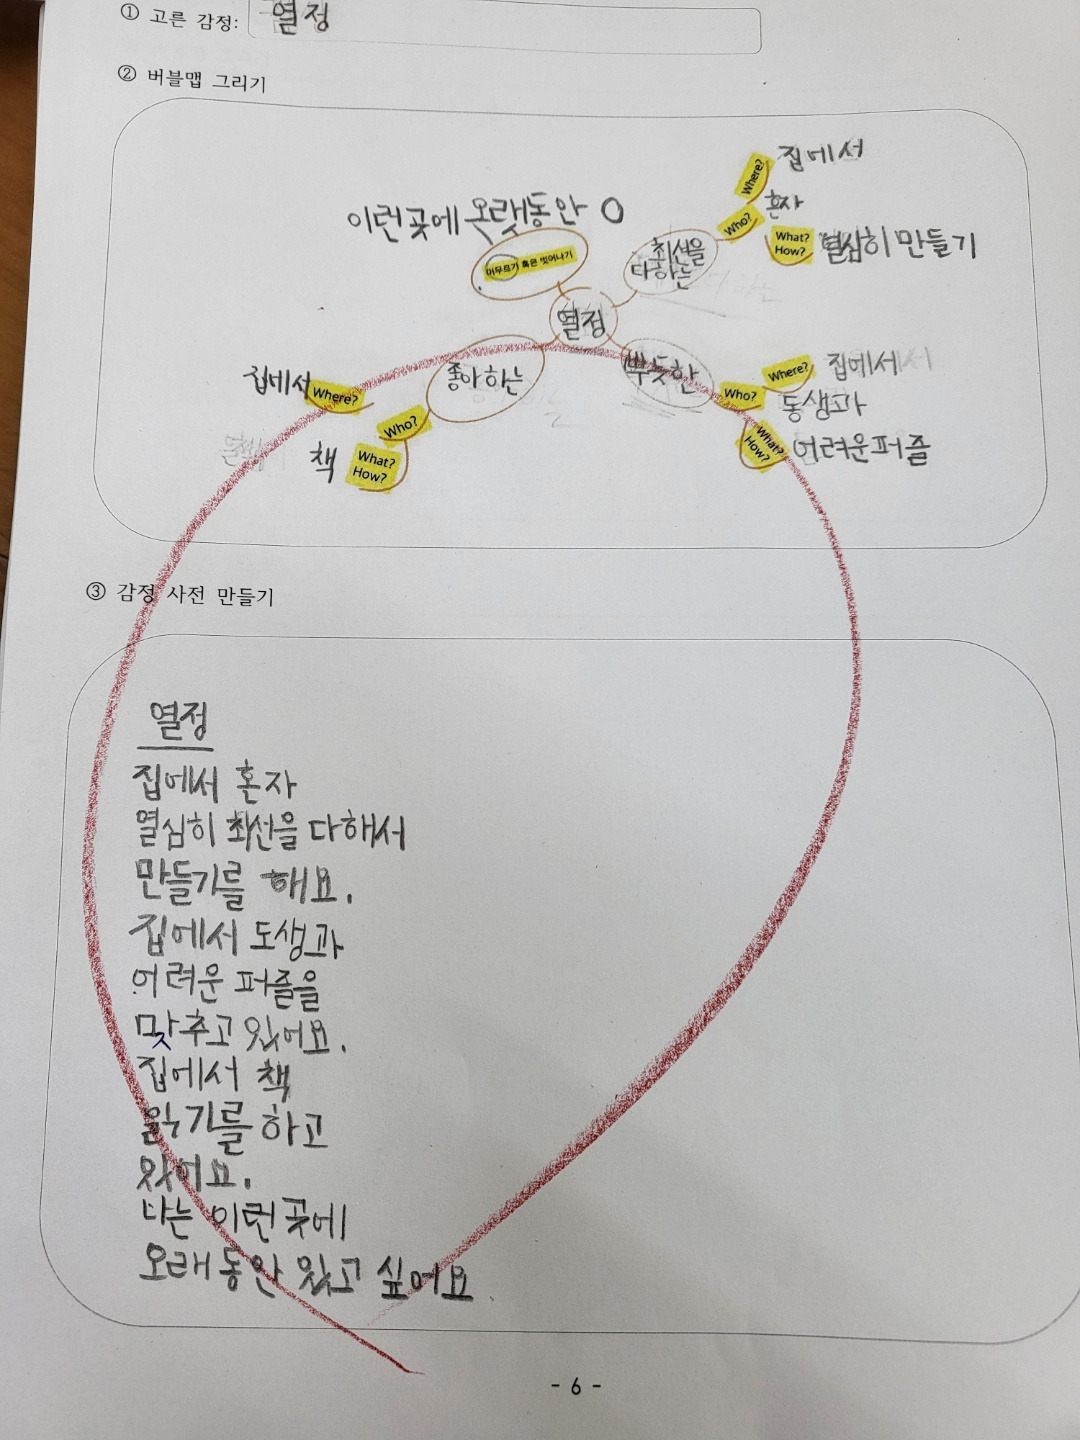 ① 고른 감정: 열정
② 버블맵 그리기
이런곳에 옷랫동안 O
머무르기 혹은 벗어나기
최선을
다하는
Where? 집에서
Who? 혼자
What?
How? 열심히 만들기
열정
좋아하는
집에서 Where?
Who?
책 What?
How?
뿌듯한
Where? 집에서
Who? 동생과
What?
How? 어려운퍼즐
③ 감정 사전 만들기
열정
집에서 혼자
열심히 최선을 다해서
만들기를 해요.
집에서 도생과
어려운 퍼즐을
맞추고 있어요.
집에서 책
읽기를 하고
있어요.
나는 이런 곳에
오래동안 있고 싶어요
- 6 -